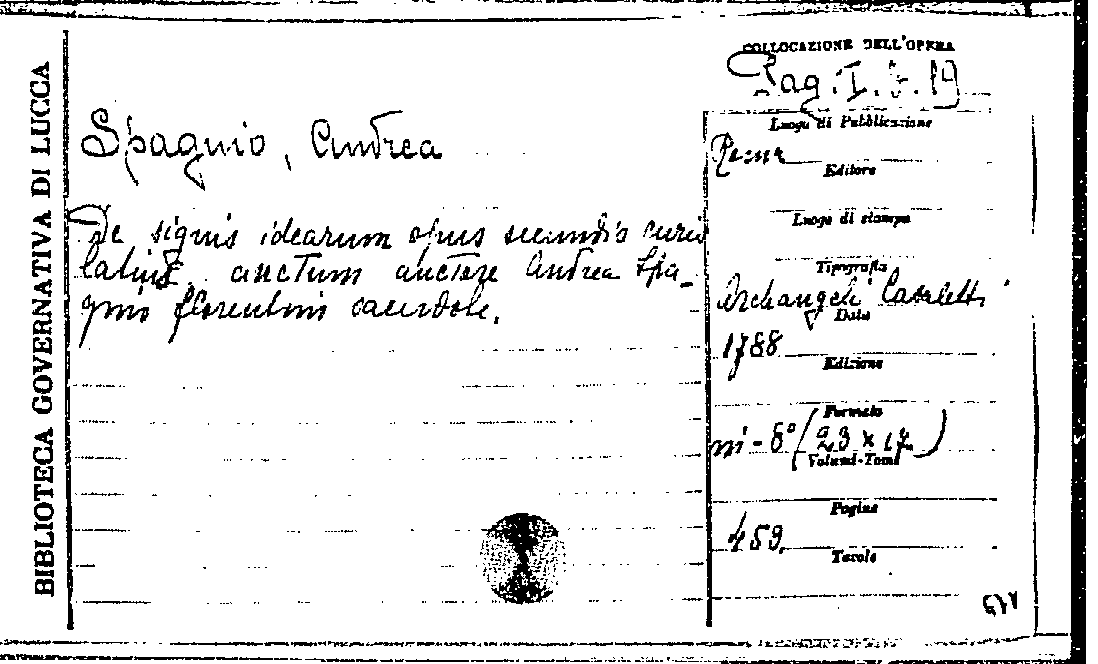 BIBLIOTECA GOVERNATIVA DI LUCCA
Spagnio, Andrea
De signis idearum opus secundis curis
latius auctum auctore Andrea Spa-
gnio florentino sacerdote.
COLLOCAZIONE DELL'OPERA
Pag. I. 19
Luogo di Pubblicazione
Roma
Editore
Luogo di stampa
Tipografia
Archangeli Casaletti
Data
1788
Edizione
Formato
in-8° (23 x 17)
Volumi-Tomi
Pagine
459
Tavole